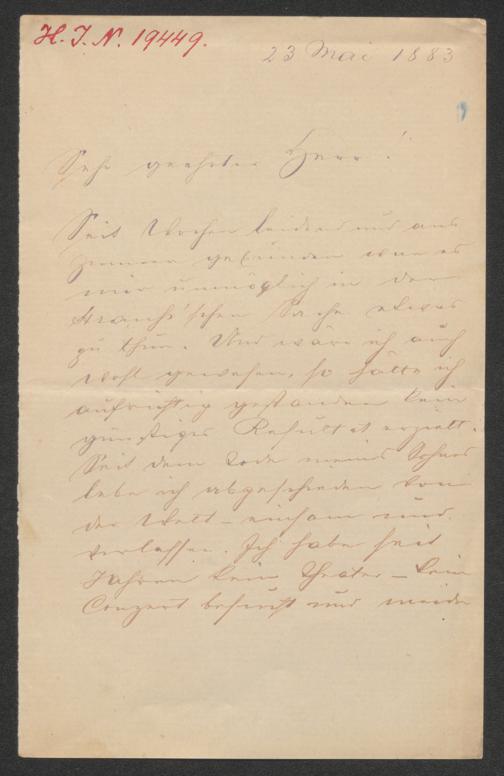 H. I. N. 19449.
23 Mai 1883
Sehr geehrter Herr!
Seit Wochen leidend und ans
Zimmer gebunden war es
mir unmöglich in der
'schen Sache etwas
zu thun. Und wäre ich auch
wohl gewesen, so hätte ich
aufrichtig gestanden kein
günstiges Resultat erzielt.
Seit dem Tode meines Sohnes
lebe ich abgeschieden von
der Welt – einsam und
verlassen. Ich habe seit
Jahren kein Theater – kein
Conzert besucht und meide